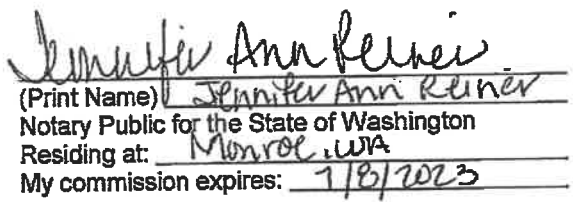 Jennifer Ann Reiner
(Print Name) Jennifer Ann Reiner
Notary Public for the State of Washington
Residing at: Monroe, WA
My commission expires: 7/8/2023